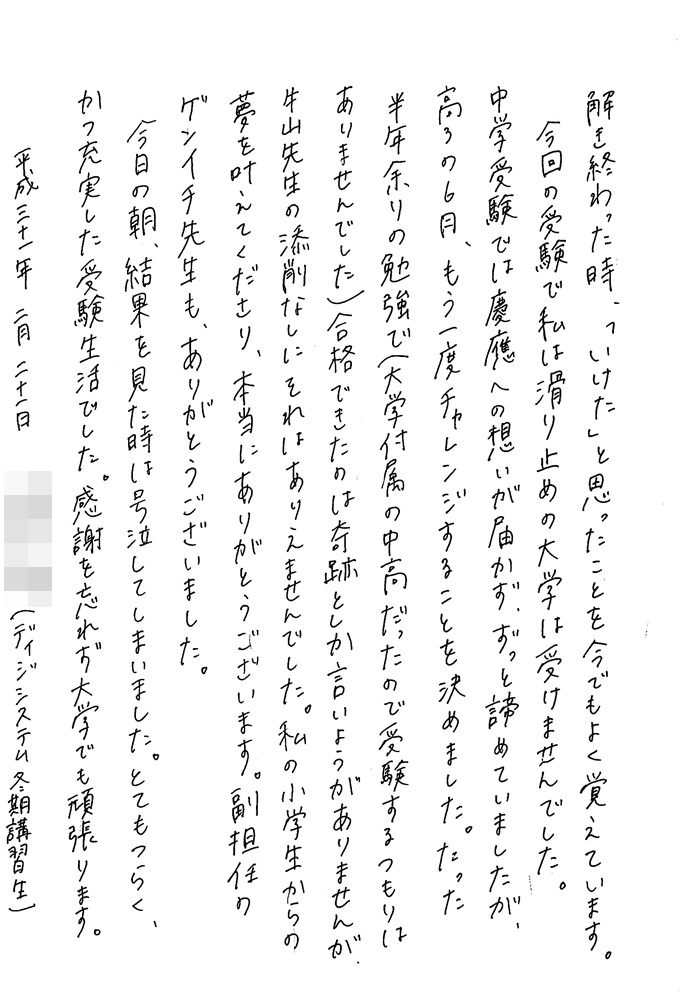 解き終わった時、「いけた」と思ったことを今でもよく覚えています。
今回の受験で私は滑り止めの大学は受けませんでした。
中学受験では慶應への想いが届かず、ずっと諦めていましたが、
高3の6月、もう一度チャレンジすることを決めました。たった
半年余りの勉強で(大学付属の中高だったので受験するつもりは
ありませんでした)合格できたのは奇跡としか言いようがありませんが、
牛山先生の添削なしにそれはありえませんでした。私の小学生からの
夢を叶えてくださり、本当にありがとうございます。副担任の
ゲンイチ先生も、ありがとうございました。
今日の朝、結果を見た時は号泣してしまいました。とてもつらく、
かつ充実した受験生活でした。感謝を忘れず大学でも頑張ります。
平成三十一年 二月 二十一日
(ディジシステム冬期講習生)